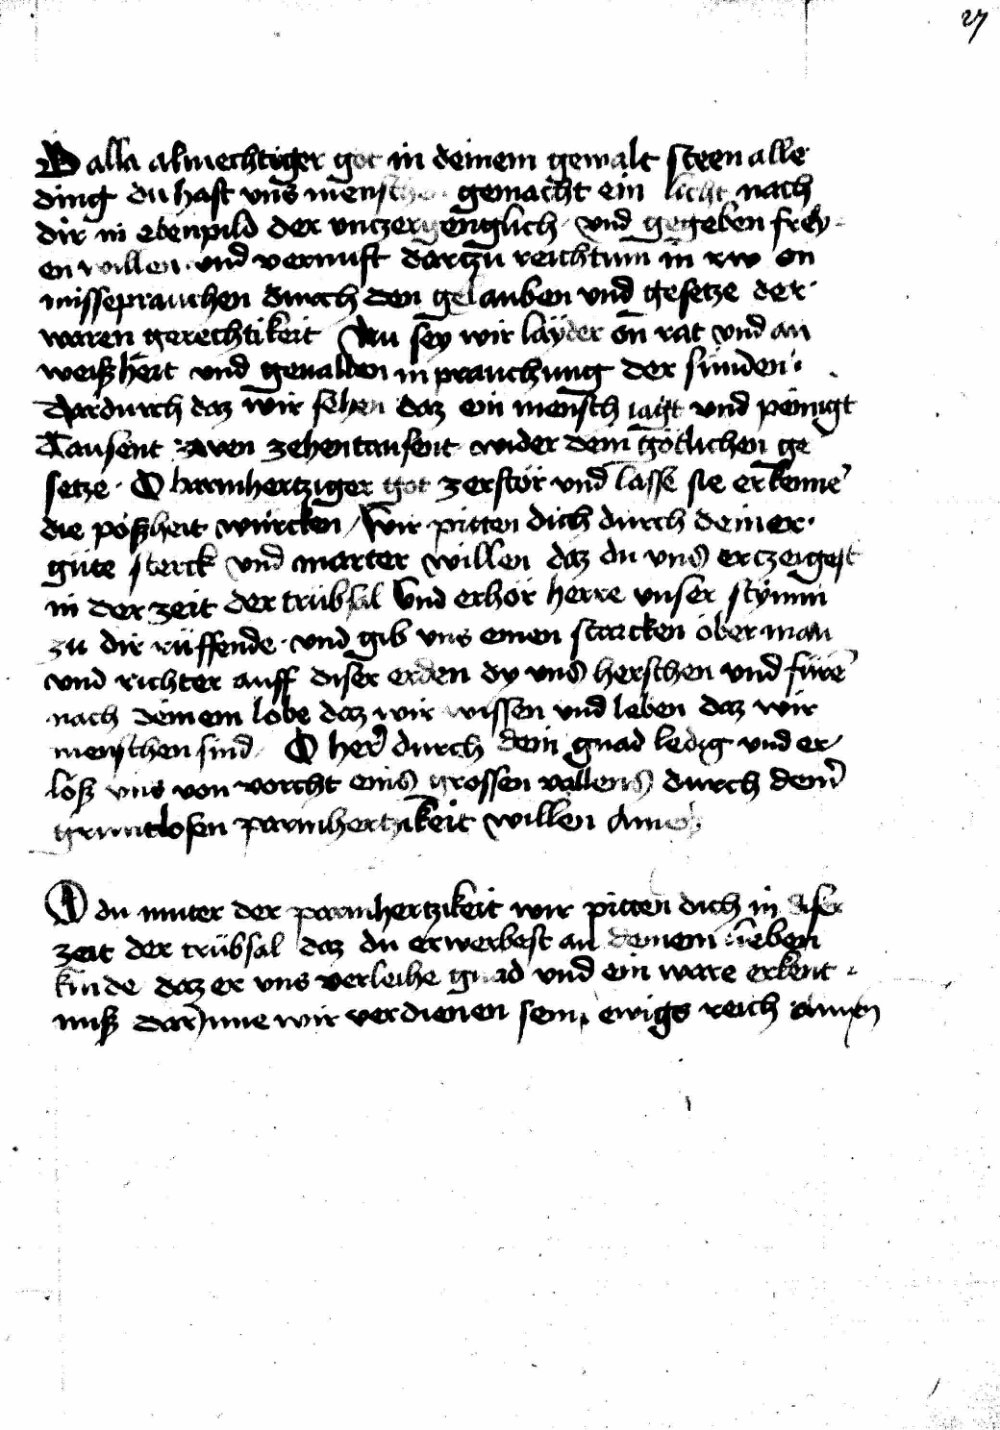 27
alla almechtiger got in deinem gewalt steen alle
ding du hast vns menschen gemacht ein licht nach
dir in ebenpild der vnczergenglich vnd gegeben frey
en willen vnd vernuft darczu reichtum in rw on
misseprauchen durch den gelauben vnd gesetze der
waren gerechtikeit Nu sey wir layder on rat vnd an
weiszheit vnd geuallen in prauchung der sunden
dardurch daz wir sehen daz ein mensch iagt vnd peinigt
Tausent zwen zehentausent wider dem gotlichen ge
setze · O barmhertziger got zerstör vnd lasse sie erkenne
die poszheit würcken / Wir pitten dich durch deiner
güte sterck vnd marter willen daz du vns erczeigest
in der zeit der trübsal vnd erhör herre vnser stymm
zu dir rüffende · vnd gib vns einen starcken oberman
vnd richter auff diser erden dy vns herschen vnd füre
nach deinem lobe daz wir wissen vnd leben daz wir
menschen sind O her durch dein gnad ledig vnd er
lösz vns von vorcht eins grossen vallens durch dein
gruntlosen parmhertzikeit willen Amen
O du muter der parmhertzikeit wir pitten dich in diser
zeit der trübsal daz du erwerbest an deinem lieben
kinde daz er vns verleihe gnad vnd ein ware erkent
nusz darinne wir verdienen sein ewigs reich Amen